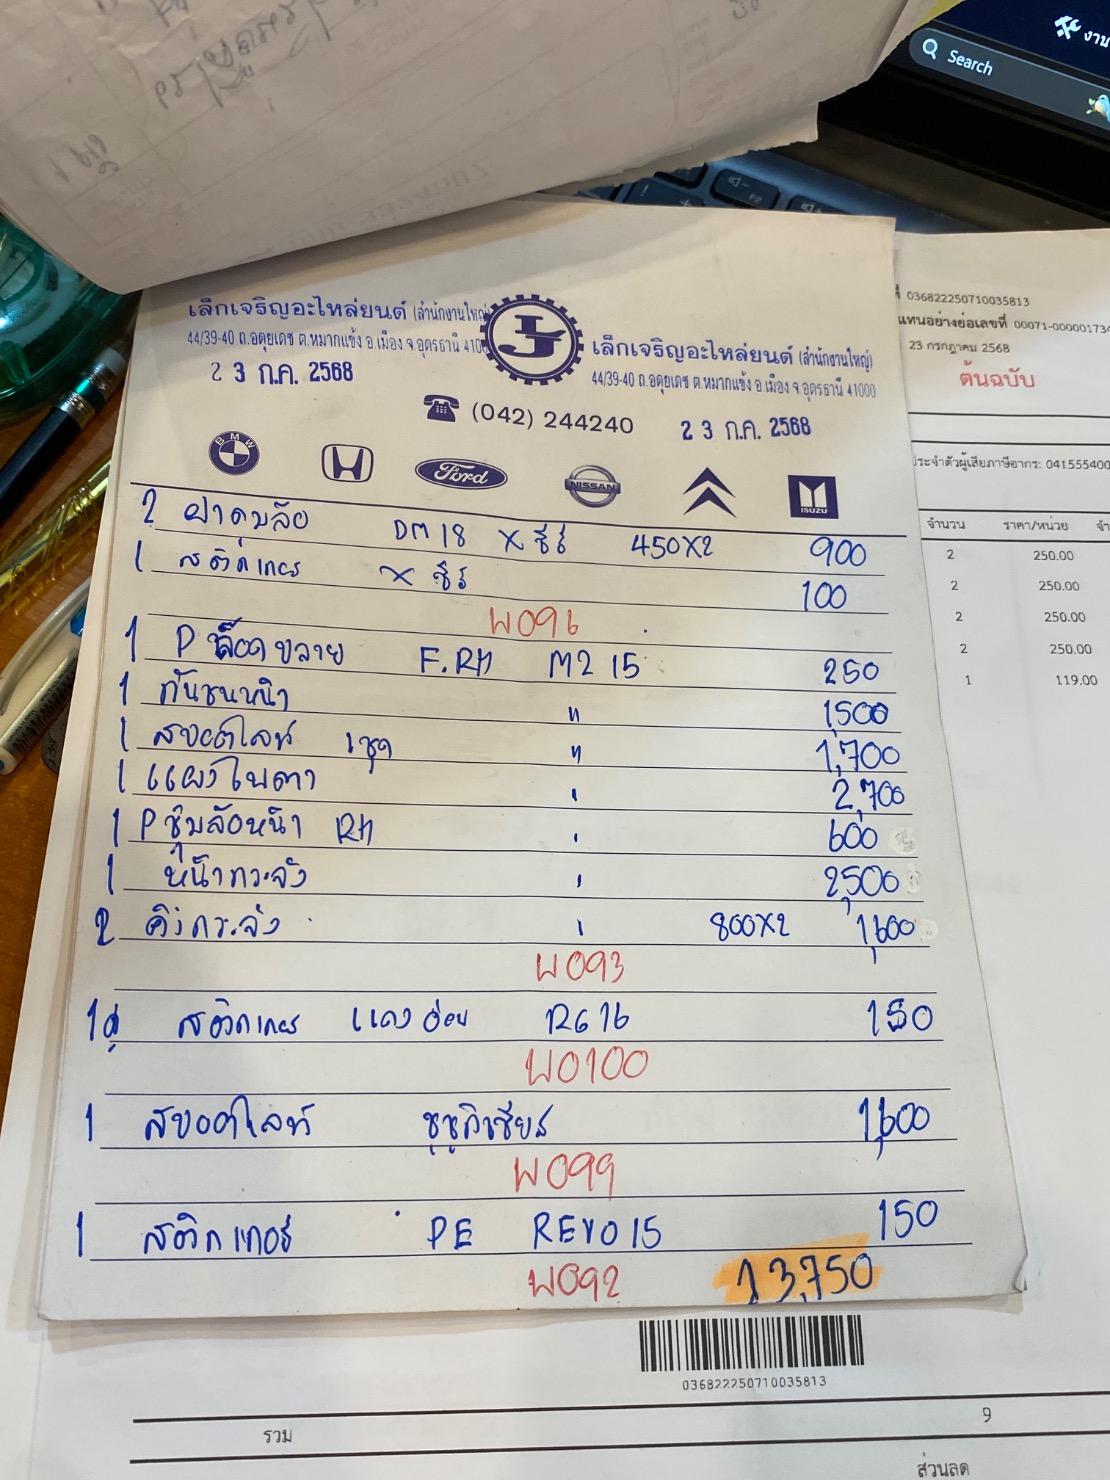 งาน
Search
เล็กเจริญอะไหล่ยนต์ (สำนักงานใหญ่)
44/39-40 ถ.อดุยเดช ต.หมากแข้ง อ.เมือง จ.อุดรธานี 41000
2 3 ก.ค. 2568
J
เล็กเจริญอะไหล่ยนต์ (สำนักงานใหญ่)
44/39-40 ถ.อดุยเดช ต.หมากแข้ง อ.เมือง จ.อุดรธานี 41000
☎ (042) 244240
2 3 ก.ค. 2568
BMW
Ford
NISSAN
ISUZU
2 ฝาดุมล้อ DM 18 X ซีรี่ 450X2 900
1 สติกเกอร์ X ซีรี่ 100
W096
1 P ล็อค ปลาย F.RH M2 15 250
1 กันชนหน้า " 1,500
1 สปอตไลท์ 1 ชุด " 1,700
1 แผงไฟตา " 2,700
1 P ซุ้มล้อหน้า RH " 600
1 หน้ากระจัง " 2,500
2 คิ้วกระจัง " 800X2 1,600
W093
1 คู่ สติกเกอร์ แดงอ่อน RG 16 150
W0100
1 สปอตไลท์ 1,600
W099
1 สติกเกอร์ PE REVO 15 150
W092 13,750
ที่ 036822250710035813
แทนอย่างย่อเลขที่ 00071-000001734
23 กรกฎาคม 2568
ต้นฉบับ
ประจำตัวผู้เสียภาษีอากร: 041555400
จำนวน ราคา/หน่วย
2 250.00
2 250.00
2 250.00
2 250.00
1 119.00
036822250710035813
รวม 9
ส่วนลด